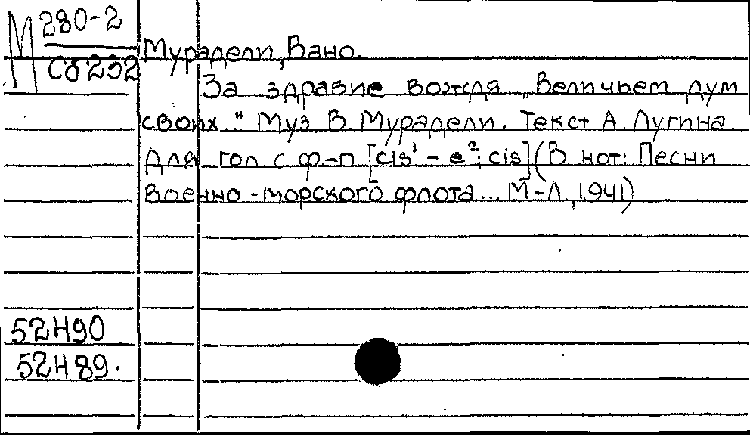 М 280-2
Сб 252
Мурадели, Вано.
За здравие вождя „Величьем дум
своих..." Муз В Мурадели. Текст А Лугина
Для гол с ф-п [cis¹ - e²; cis] (В нот: Песни
Военно-морского флота... М-Л, 1941)
52Н90
52Н89.